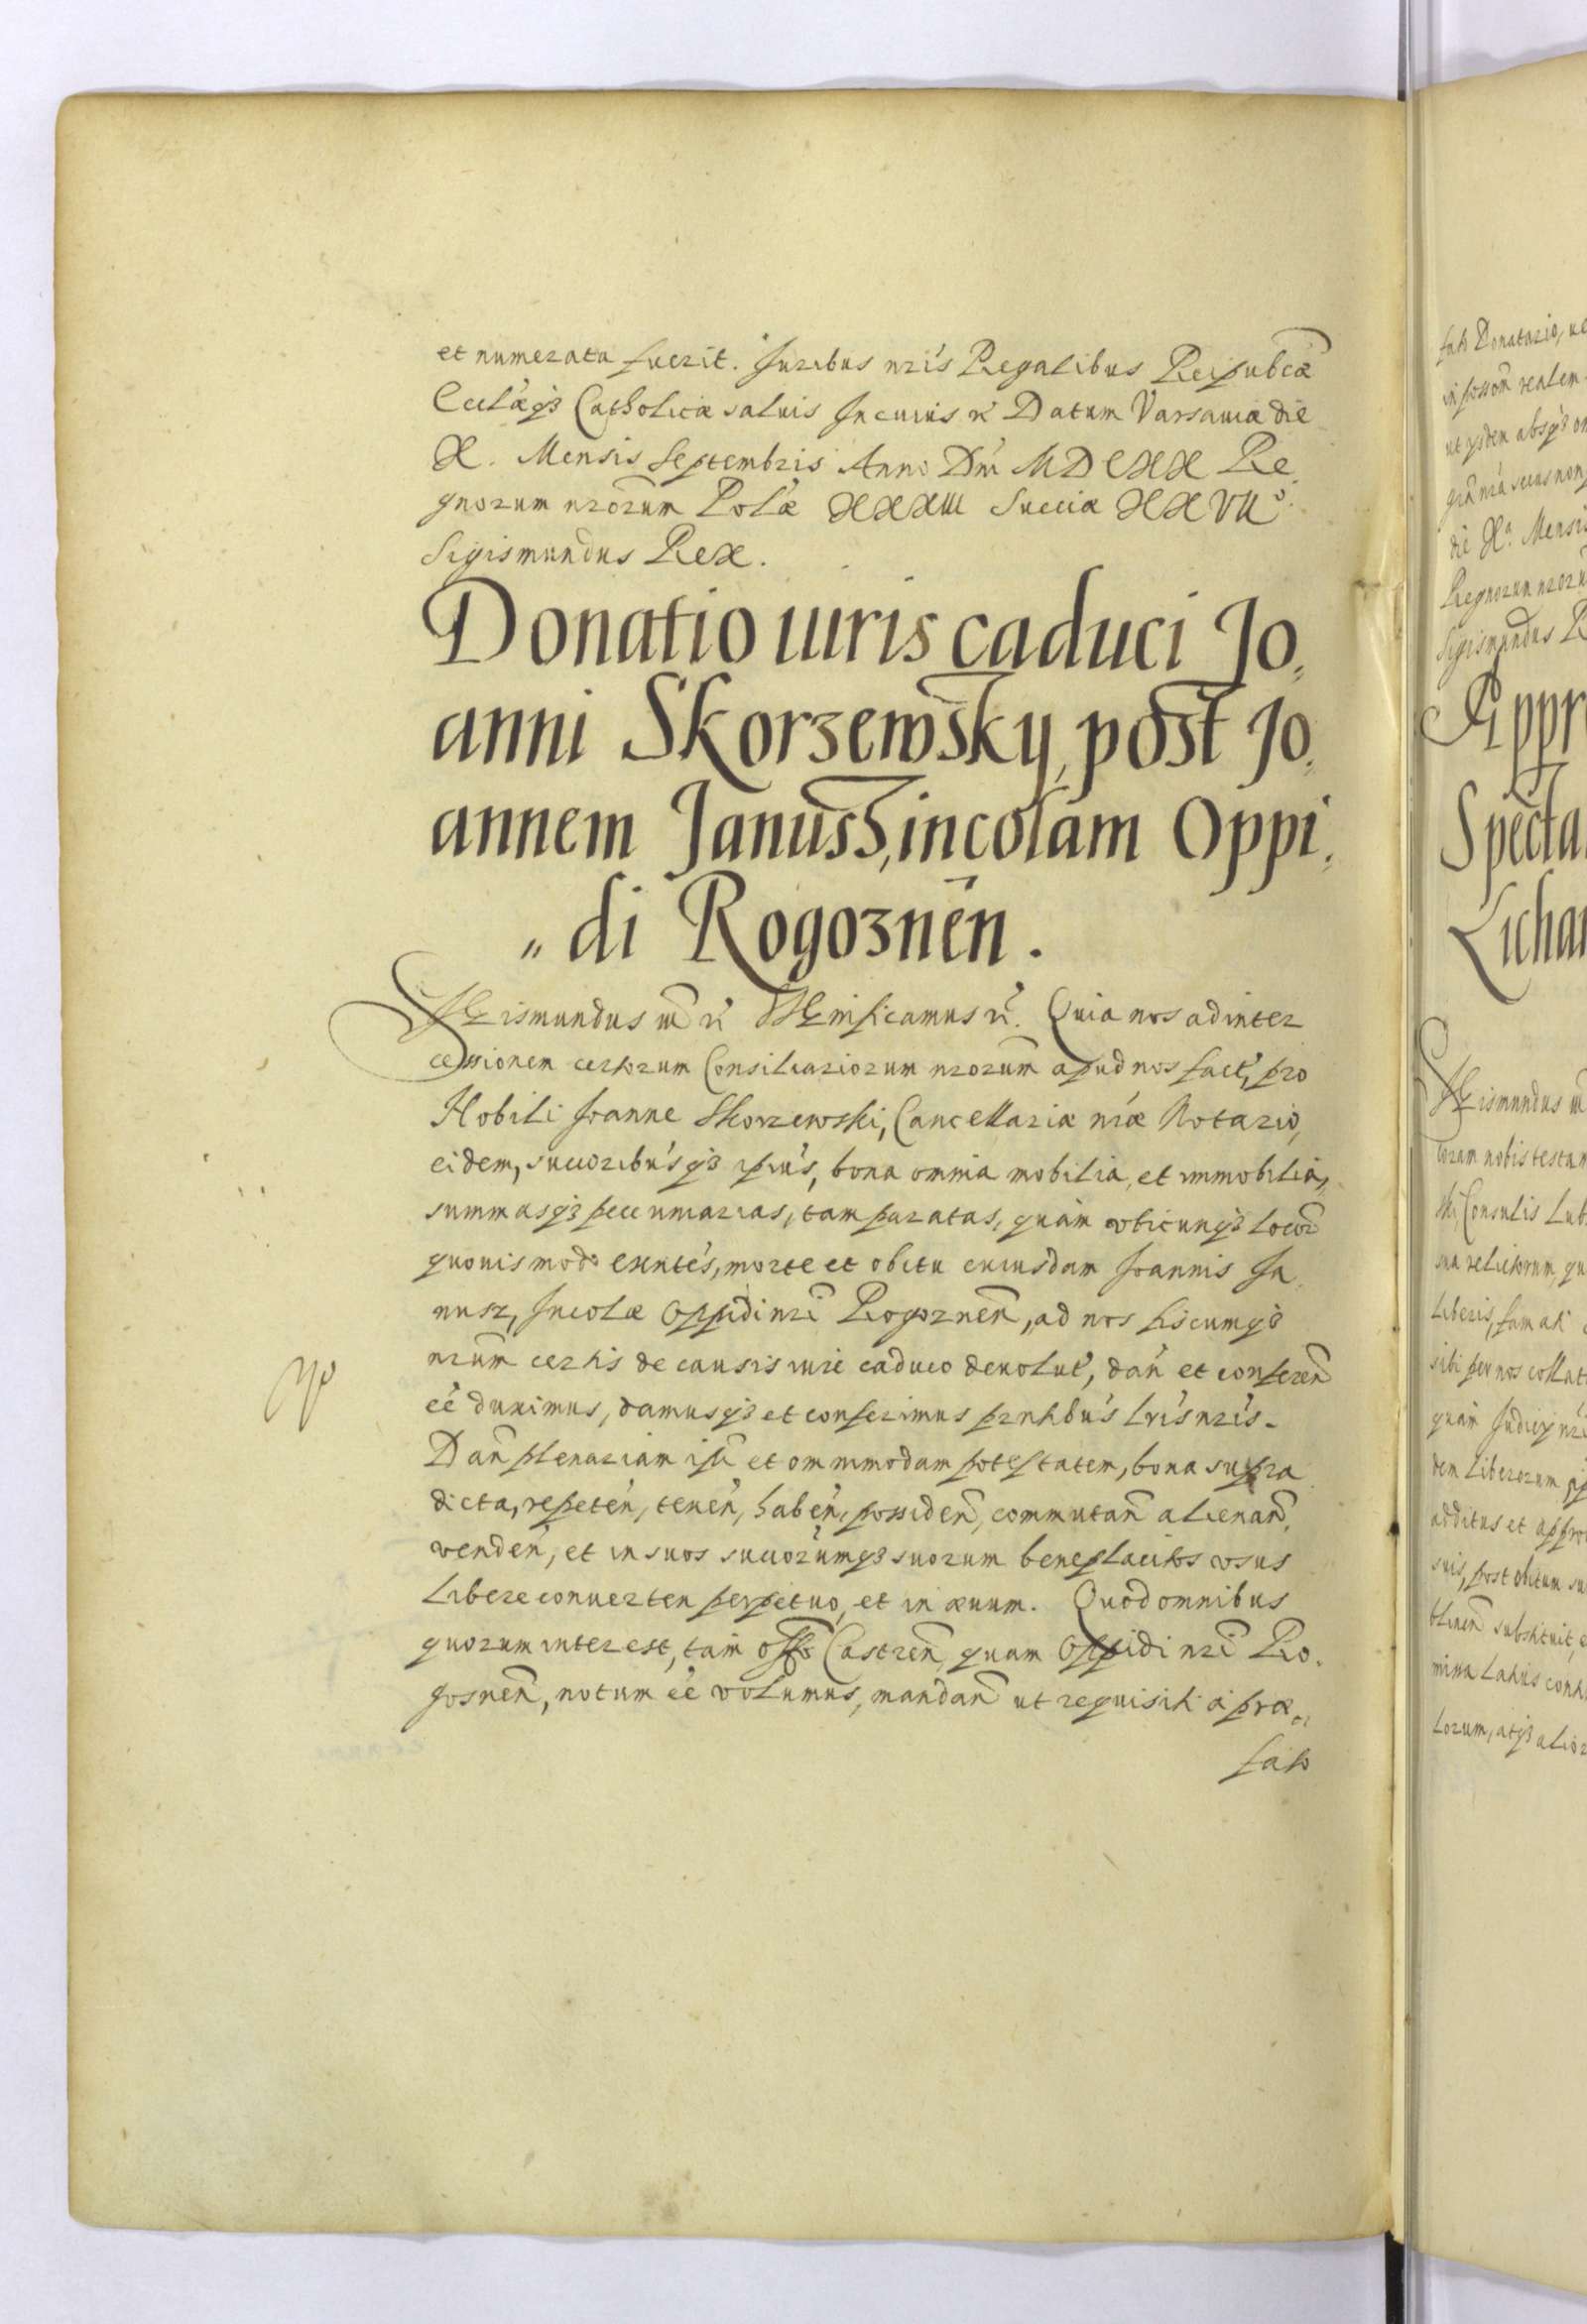 et numerata fuerit. Juribus nris Regalibus Reipubcæ
Ecclæq3 Catholicæ saluis In cuius rĕ Datum Varsauiæ die
X. Mensis Septembris Anno Dni MDCXX Re,
gnorum nrorum Polæ XXXIII Sueciæ XXVIIº.
Sigismundus Rex.
Donatio iuris caduci Jo,
anni Skorzewsky, post Jo,
annem Janussz, incolam Oppi,
„ di Rogoznen.
Sigismundus III rĕ Significamus rĕ. Quia nos ad inter
cessionem certorum Consiliariorum nrorum apud nos fact, pro
Nobili Joanne Skorzewski, Cancellariæ nræ Notario,
eidem, succoribusq3 ipius, bona omnia mobilia, et immobilia,
summasq3 pecuniarias, tam paratas, quam vbicunq3 locor
quouis modo exntes, morte et obitu cuiusdam Joannis Ja,
nusz, Incolæ Oppidi nri Rogoznen, ad nos fiscumq3
nrum certis de causis iure caduco deuolut, dan et conferen
eē duximus, damusq3 et conferimus prntibus lris nris.
Dan plenariam ipi et omnimodam potestatem, bona supra
dicta, repeten, tenen, haben, possiden, commutan alienan,
venden, et in suos succorumq3 suorum beneplacitos vsus
libere conuerten perpetuo, et in æuum. Quod omnibus
quorum interest, tam offo Castren, quam Oppidi nri Ro,
gosnen, notum eē volumus, mandan ut requisiti à præ,
fato
fato Donatario,
in possom realem
ut ysdem absq3
grā nrā secus non
die Xª. Mensis
Regnorum nrorum
Sigismundus
Appr
Specta
Lichan
Sigismundus
coram nobis testam
Consulis Lub
sua relictorum
liberis, famati
sibi per nos collat
quam Judicij nri
dem liberorum
additus et appro
suis, post obitum
substituit,
latius
lorum, atq3 alior